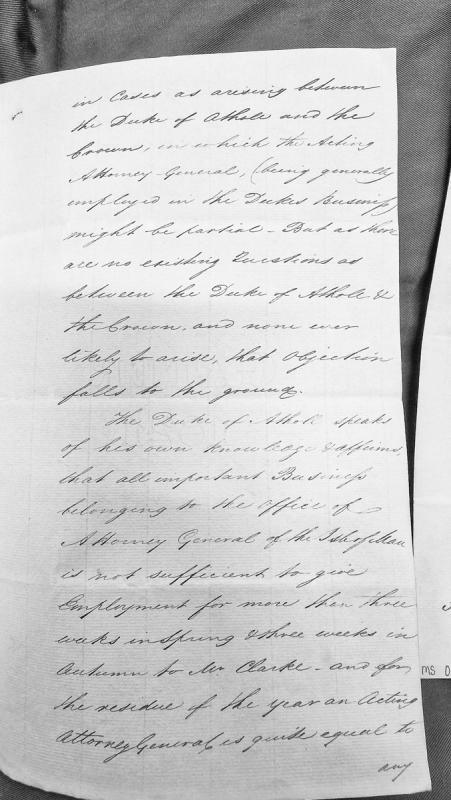 in Cases as arising between
the Duke of Atholl and the
Crown, in which the Acting
Attorney-General, (being generally
employed in the Dukes Business
might be partial - But as there
are no existing Questions as
between the Duke of Atholl &
the Crown, and none ever
likely to arise, that Objection
falls to the ground.
The Duke of Atholl speaks
of his own knowledge & affirms,
that all important Business
belonging to the office of
Attorney General of the Isle of Man
is not sufficient to give
Employment for more then three
weeks in Spring & three weeks in
Autumn to Mr Clarke - and for
the residue of the year an Acting
Attorney General, is quite equal to
any
MS 0